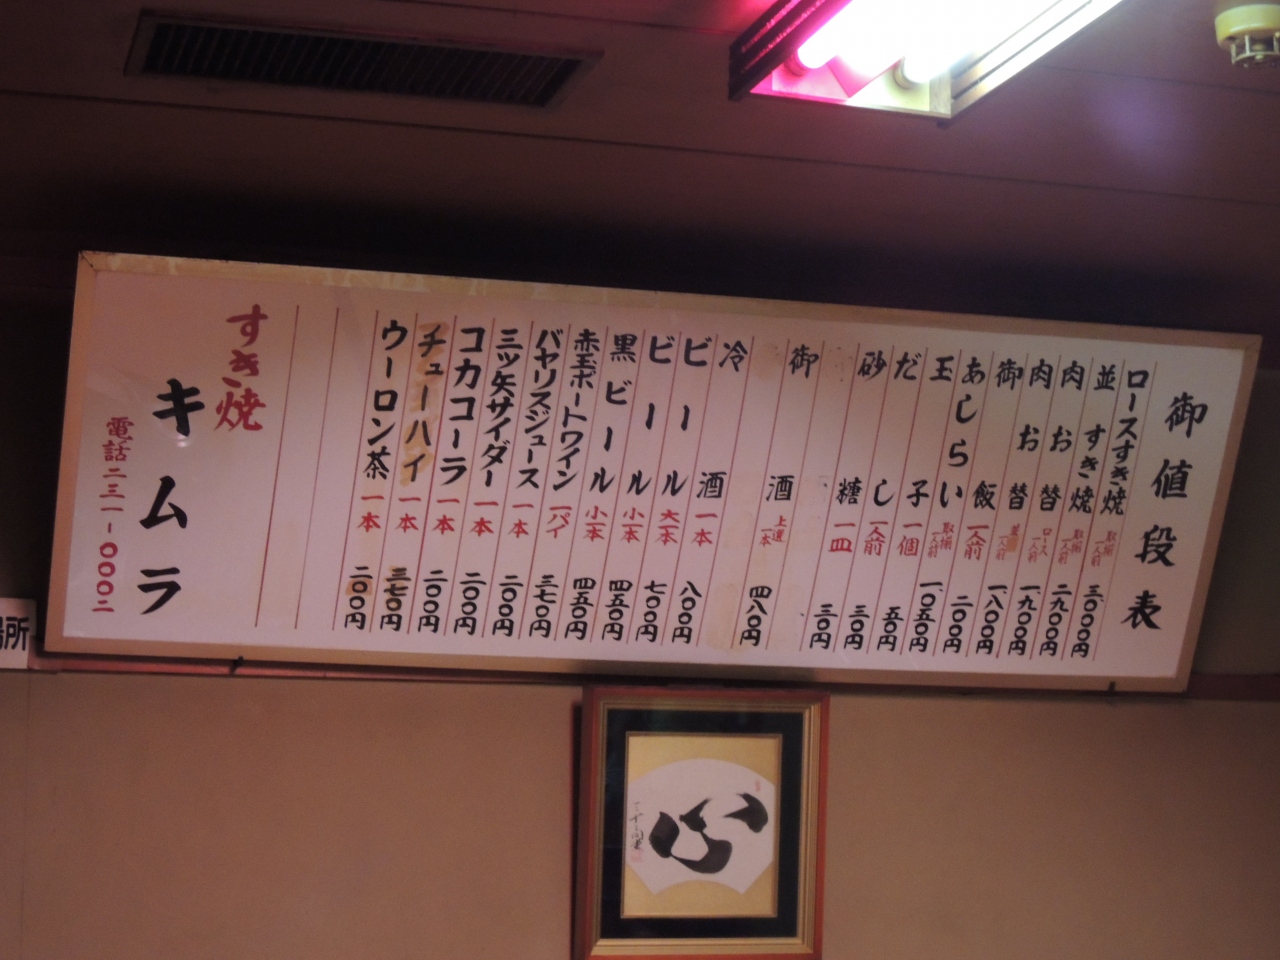 御値段表
ロースすき焼 取揃一人前 三、〇〇〇円
並すき焼 取揃一人前 二、九〇〇円
肉お替 ロース一人前 一、九〇〇円
肉お替 並一人前 一、八〇〇円
御飯 一人前 二〇〇円
あしらい 取揃一人前 一、〇五〇円
玉子 一個 五〇円
だし 一人前 三〇円
砂糖 一皿 三〇円
御酒 上選一本 四八〇円
冷酒 一本 八〇〇円
ビール 大一本 七〇〇円
ビール 小一本 四五〇円
黒ビール 小一本 四五〇円
赤玉ポートワイン 一パイ 三七〇円
バヤリスジュース 一本 二〇〇円
三ツ矢サイダー 一本 二〇〇円
コカコーラ 一本 二〇〇円
チューハイ 一本 三七〇円
ウーロン茶 一本 二〇〇円
すき焼
キムラ
電話二三一-〇〇〇二
所
心